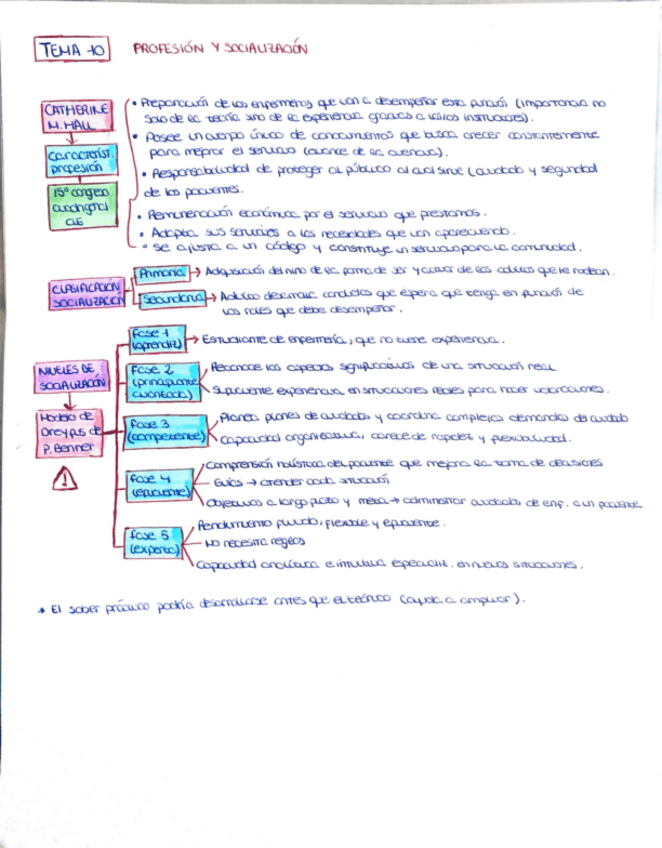 TEMA 10 PROFESIÓN Y SOCIALIZACIÓN
CATHERINE M. HALL
Característ. profesión
15º congreso cuadrigenal CIE
• Preparación de los enfermeros que van a desempeñar esta función (importancia no
solo de la teoría sino de la experiencia gracias a varios instructores).
• Posee un cuerpo único de conocimientos que busca crecer constantemente
para mejorar el servicio (avance de la ciencia).
• Responsabilidad de proteger al público al cual sirve (cuidado y seguridad
de los pacientes.
• Remuneración económica por el servicio que prestamos.
• Adapta sus servicios a las necesidades que van apareciendo.
• Se ajusta a un código y constituye un servicio para la comunidad.
CLASIFICACIÓN SOCIALIZACIÓN
Primaria → Adquisición del niño de la forma de ser y actuar de los adultos que le rodean.
Secundaria → Adulto desarrolla conductas que espera que tenga en función de
los roles que debe desempeñar.
NIVELES DE SOCIALIZACIÓN
Modelo de Dreyfus de P. Benner
Fase 1 (aprendiz) → Estudiante de enfermería, que no tiene experiencia.
Fase 2 (principiante avanzada)
Reconoce los aspectos significativos de una situación real
Suficiente experiencia en situaciones reales para hacer valoraciones.
Fase 3 (competente)
Planea planes de cuidados y coordina complejas demandas de cuidado
Capacidad organizativa, carece de rapidez y flexibilidad.
Fase 4 (eficiente)
Comprensión holística del paciente que mejora la toma de decisiones
Guías → atender cada situación
Objetivos a largo plazo y meta → administrar cuidados de enf. a un paciente
Fase 5 (experto)
Rendimiento fluido, flexible y eficiente.
No necesita reglas
Capacidad analítica e intuitiva especialit. en nuevas situaciones.
* El saber práctico podría desarrollarse antes que el teórico (ayuda a ampliar).